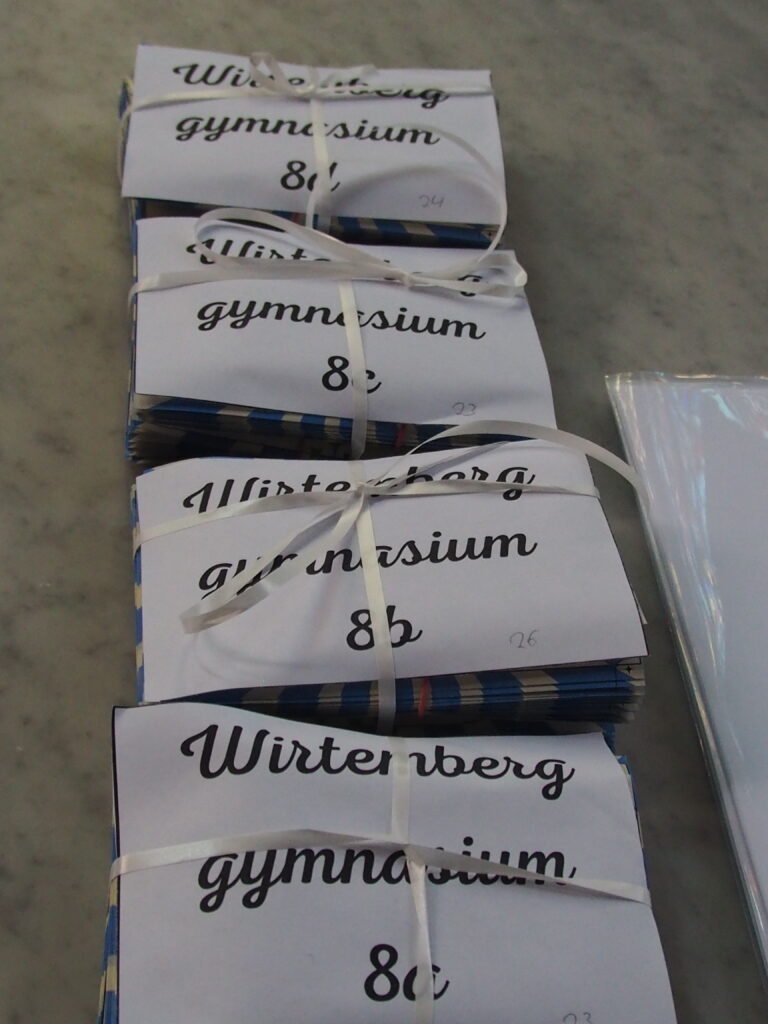 Wirtemberg
gymnasium
8d
24
Wirtemberg
gymnasium
8c
23
Wirtemberg
gymnasium
8b
26
Wirtemberg
gymnasium
8a
23